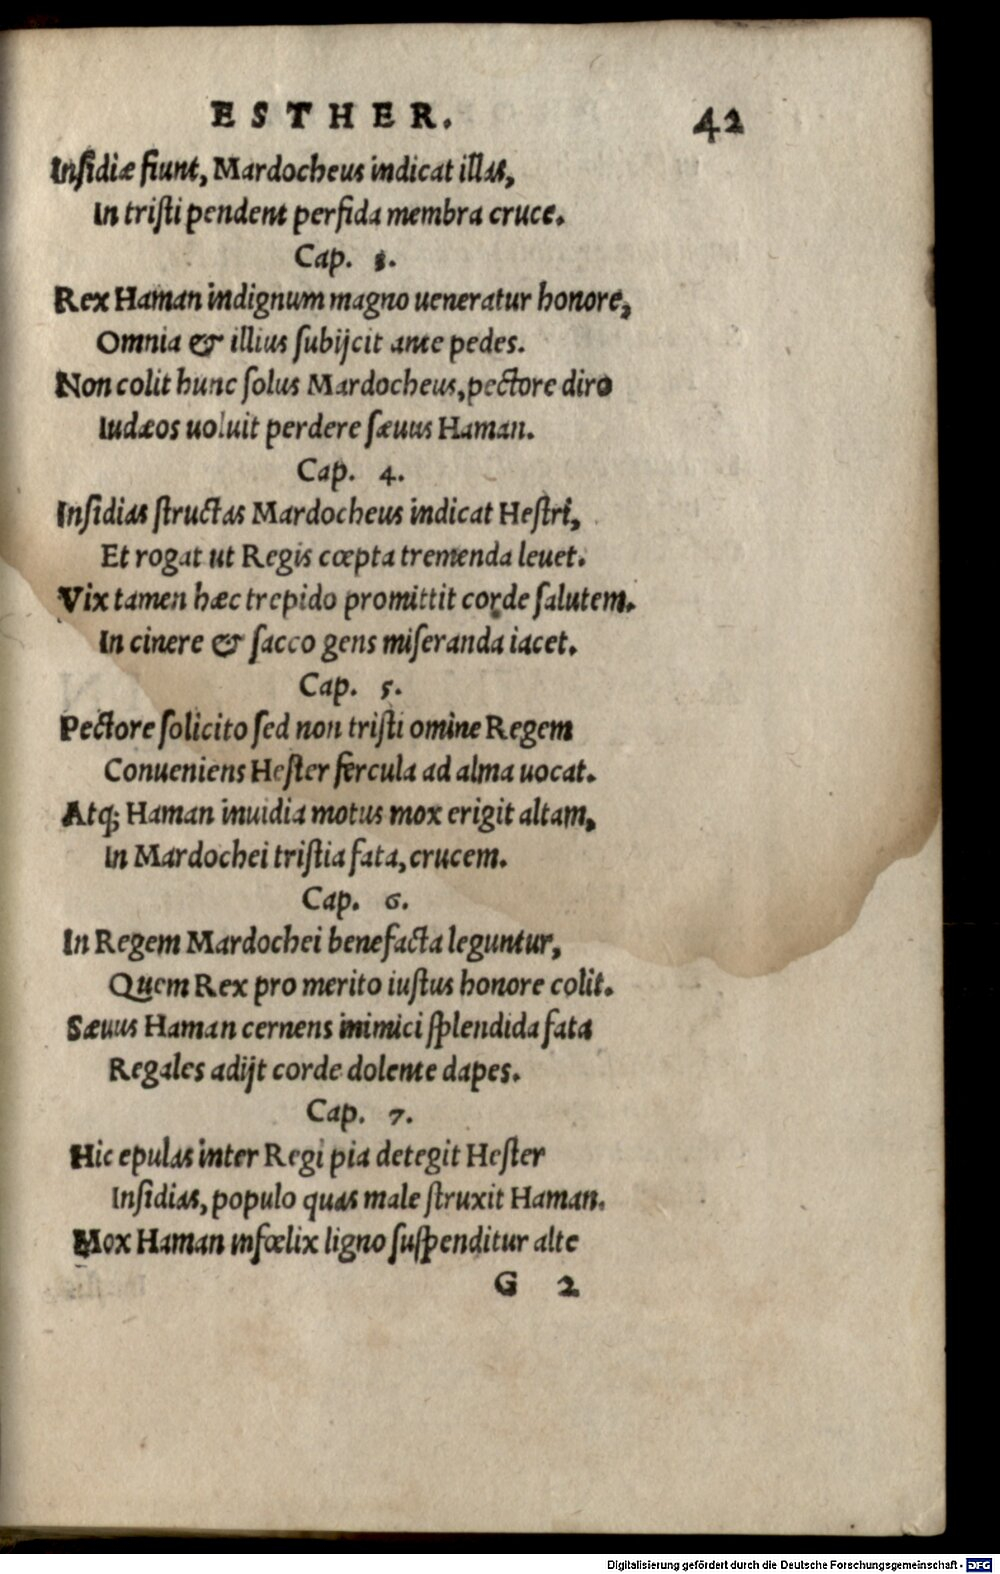 ESTHER. 42
Inſidiæ fiunt, Mardocheus indicat illas,
In triſti pendent perfida membra cruce.
Cap. 3.
Rex Haman indignum magno ueneratur honore,
Omnia & illius ſubijcit ante pedes.
Non colit hunc ſolus Mardocheus, pectore diro
Iudæos uoluit perdere ſæuus Haman.
Cap. 4.
Inſidias ſtructas Mardocheus indicat Heſtri,
Et rogat ut Regis cœpta tremenda leuet.
Vix tamen hæc trepido promittit corde ſalutem.
In cinere & ſacco gens miſeranda iacet.
Cap. 5.
Pectore ſolicito ſed non triſti omine Regem
Conueniens Heſter fercula ad alma uocat.
Atq; Haman inuidia motus mox erigit altam,
In Mardochei triſtia fata, crucem.
Cap. 6.
In Regem Mardochei benefacta leguntur,
Quem Rex pro merito iuſtus honore colit.
Sæuus Haman cernens inimici ſplendida fata
Regales adijt corde dolente dapes.
Cap. 7.
Hic epulas inter Regi pia detegit Heſter
Inſidias, populo quas male ſtruxit Haman.
Mox Haman infœlix ligno ſuſpenditur alte
G 2
Digitalisierung gefördert durch die Deutsche Forschungsgemeinschaft - DFG